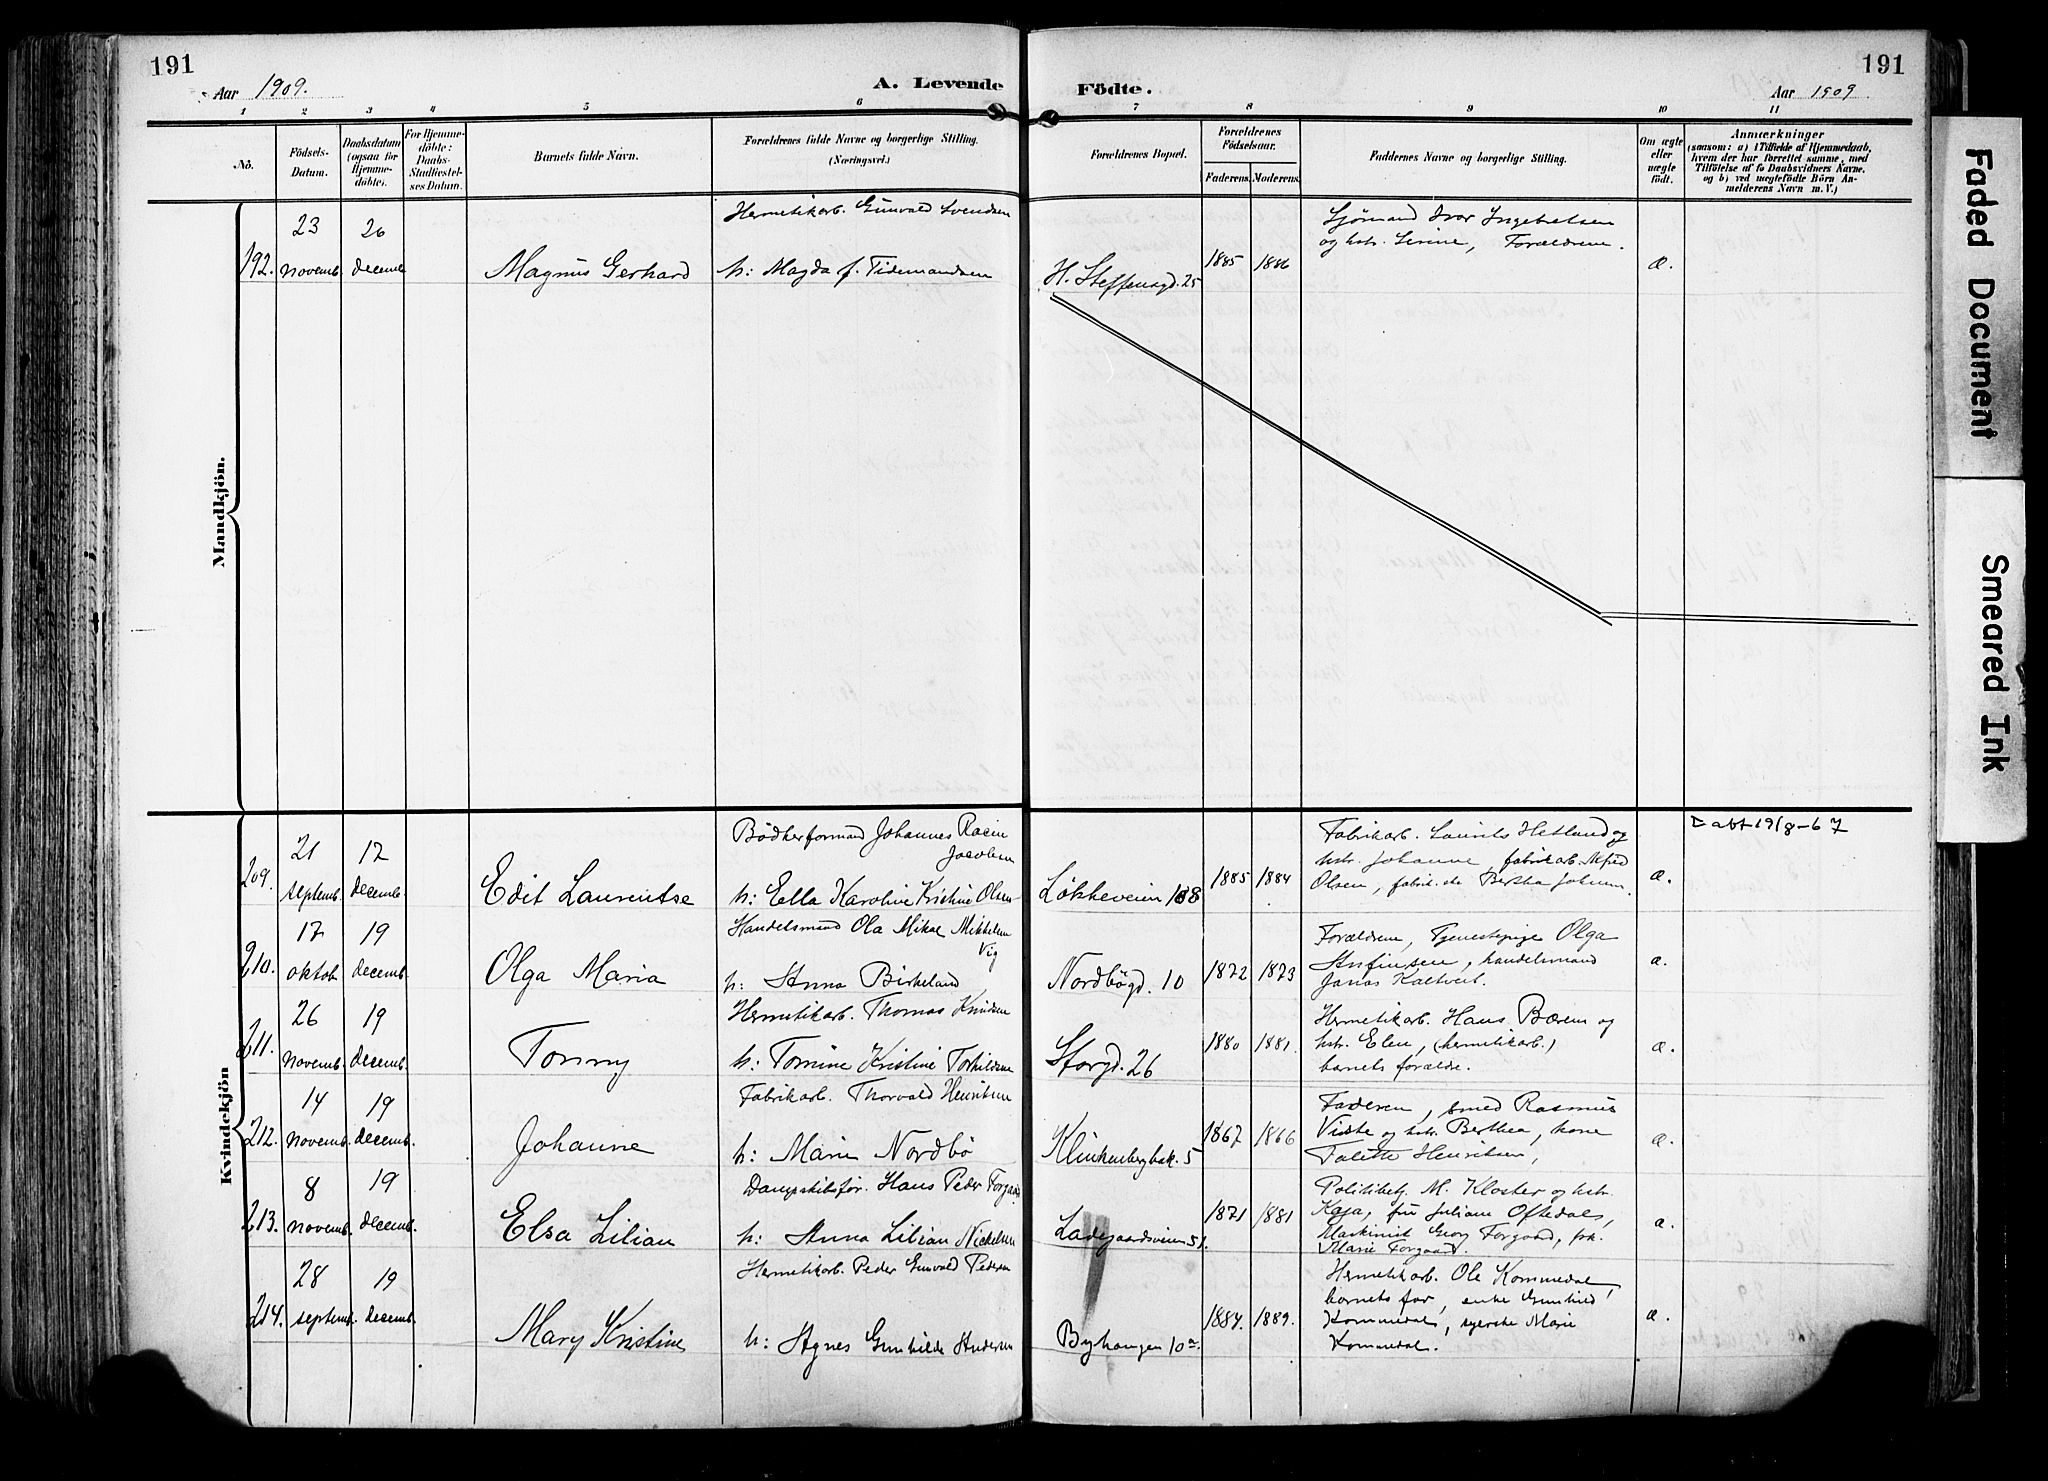 191
Aar 1909.
A. Levende Födte.
191
Aar 1909
1 2 3 4 5 6 7 8 9 10 11
Nò.
Födsels-Datum.
Daabsdatum (ogsaa for Hjemme-döbte).
For Hjemme-döbte: Daabs-Stadfæstel-ses Datum.
Barnets fulde Navn.
Forældrenes fulde Navne og borgerlige Stilling. (Næringsvei.)
Forældrenes Bopæl.
Forældrenes Födselsaar.
Faderens. Moderens.
Faddernes Navne og borgerlige Stilling.
Om ægte eller uægte födt.
Anmærkninger
(saasom: a) i Tilfælde af Hjemmedaab, hvem der har forrettet samme, med Tilföielse af to Daabsvidners Navne, og b) ved uægtefödte Börn An-melderens Navn m. V.)
Mandkjön.
192. 23 novemb. 26 decemb.
Magnus Gerhard
Hermetikarb. Gunvald Svendsen
h: Magda f. Tidemandsen
H. Steffensgd. 25
1885 1886
Sjömand Ivar Ingebretsen
og hstr. Serine, Forældrene.
æ.
Kvindekjön
209. 21 septemb. 12 decemb.
Edit Laurentse
Bödkerformand Johannes Racin
Jacobsen
h: Ella Karoline Kristine Olsen
Lökkeveien 108
1885 1884
Fabrikarb. Laurits Hetland og
hstr. Johanne, fabrikarb. Alfred
Olsen, fabrik.
æ.
abf 19/8-67
210. 17 oktob. 19 decemb.
Olga Maria
Handelsmand Ola Mikal Mikkelsen
Vig
h: Anna Birkeland
Nordbögd. 10
1872 1873
Forældrene, Tjenestepige Olga
handelsmand
Jonas Kaltveit.
æ.
211. 26 novemb. 19 decemb.
Tonny
Hermetikarb. Thomas Knudsen
h: Tomine Kristine Torkildsen
Storgd. 26
1880 1881.
Hermetikarb. Hans Bærem og
hstr. Elen, (hermetikarb.)
barnets forælde.
æ.
212. 14 novemb. 19 decemb.
Johanne
Fabrikarb. Thorvald Henriksen
h: Marie Nordbö
Klinkenbergbak. 5
1867 1866
Faderen, smed Rasmus
Viste og hstr. Berthea, kone
Talette Henriksen,
æ.
213. 8 novemb. 19 decemb.
Elsa Lilian
Dampskibsför. Hans Peder Forgaard
h: Anna Lilian Nickelsen
Ladegaardsveien 51.
1871 1881
Politibetj. M. Kloster og hstr.
Kaja, fru Juliane Oftedal,
Maskinist Georg Forgaard, frk.
Marie Forgaard.
æ.
214. 28 septemb. 19 decemb.
Mary Kristine
Hermetikarb. Peder Gunvald Pedersen
h: Agnes Gunhilde Andersen
Byhaugen 10a
1884. 1889.
Hermetikarb. Ole Kommedal
barnets far, enke Gunhild
Kommedal, syerske Marie
Kommedal.
æ.
Faded Document
Smeared Ink